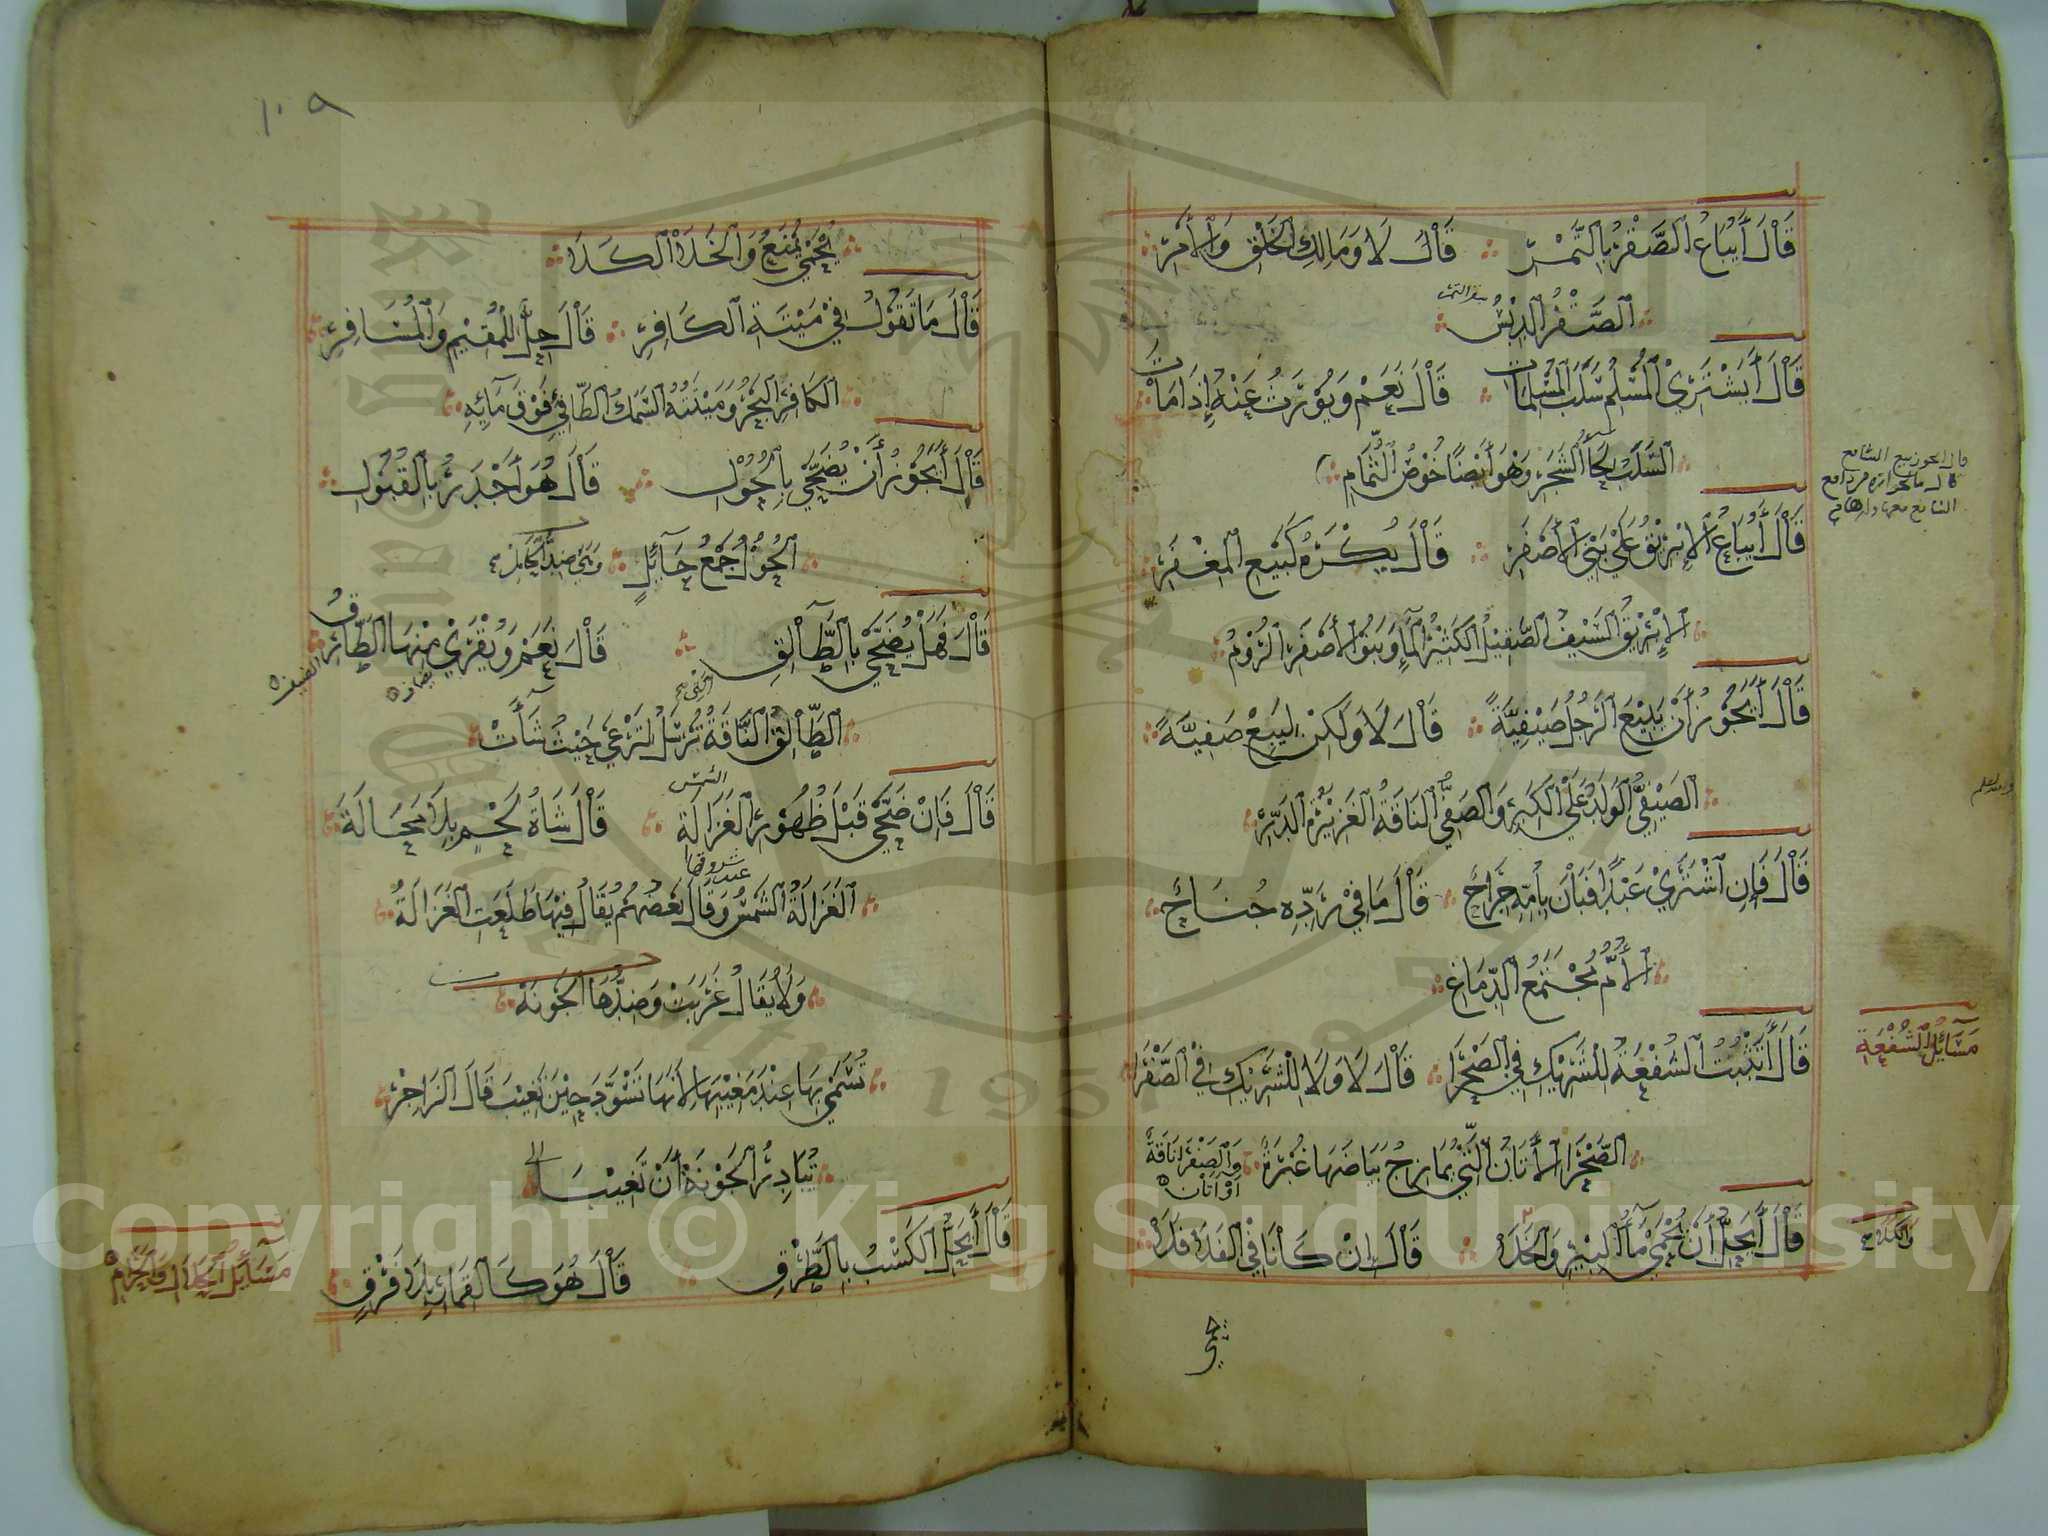 قَالَ أَيُبَاعُ الصَّقْرُ بِالتَّمْرِ قَالَ لَا وَمَالِكِ الْخَلْقِ وَالْأَمْرِ
الصَّقْرُ الدِّبْسُ
قَالَ أَيَشْتَرِي الْمُسْلِمُ سَلَبَ الْمُسْلِمَاتِ قَالَ نَعَمْ وَيُورَثُ عَنْهُ إِذَا مَاتَ
السَّلَبُ لِحَاءُ الشَّجَرِ وَهُوَ أَيْضًا خُوصُ الثُّمَامِ
قَالَ أَيُبَاعُ الْإِبْرِيقُ عَلَى بَنِي الْأَصْفَرِ قَالَ يُكْرَهُ كَبَيْعِ الْمِغْفَرِ
الْإِبْرِيقُ السَّيْفُ الصَّقِيلُ الْكَثِيرُ الْمَاءِ وَبَنُو الْأَصْفَرِ الرُّومُ
قَالَ أَيَجُوزُ أَنْ يَبِيعَ الرَّجُلُ صَيْفِيَّةً قَالَ لَا وَلَكِنْ لِيَبِعْ صَفِيَّةً
الصَّيْفِيُّ الْوَلَدُ عَلَى الْكِبَرِ وَالصَّفِيُّ النَّاقَةُ الْغَزِيرَةُ الدَّرِّ
قَالَ فَإِنِ اشْتَرَى عَبْدًا فَبَانَ بِأُمِّهِ جِرَاحٌ قَالَ مَا فِي رَدِّهِ جُنَاحٌ
الْأُمُّ مُجْتَمَعُ الدِّمَاغِ
مَسَائِلُ الشُّفْعَةِ
قَالَ أَتَثْبُتُ الشُّفْعَةُ لِلشَّرِيكِ فِي الصَّحْرَا قَالَ لَا وَلَا لِلشَّرِيكِ فِي الصَّفْرَا
الصَّحْرَا الْأَتَانُ الَّتِي يُمَازِجُ بَيَاضَهَا غُبْرَةٌ وَالصَّفْرَا نَاقَةٌ
أَوْ أَتَانٌ
قَالَ أَيَحِلُّ أَنْ يُحْمَى مَاءُ الْبِئْرِ وَالْخَلَا قَالَ إِنْ كَانَا فِي الْفَلَا فَلَا
يحمى
١٠٩
يُحْمَى يُمْنَعُ وَالْخَلَا الْكَلَا
قَالَ مَا تَقُولُ فِي مَيْتَةِ الْكَافِرِ قَالَ حِلٌّ لِلْمُقِيمِ وَالْمُسَافِرِ
الْكَافِرُ الْبَحْرُ وَمَيْتَتُهُ السَّمَكُ الطَّافِي فَوْقَ مَائِهِ
قَالَ أَيَجُوزُ أَنْ يُضَحَّى بِالْحُولِ قَالَ هُوَ أَجْدَرُ بِالْقَبُولِ
الْحُولُ جَمْعُ حَائِلٍ وهي ضد الحامل
قَالَ فَهَلْ يُضَحَّى بِالطَّالِقِ قَالَ نَعَمْ وَيُقْرَى مِنْهَا الطَّارِقُ
الضيف
الطَّالِقُ النَّاقَةُ تُرْسَلُ تَرْعَى حَيْثُ شَاءَتْ
الشمس
قَالَ فَإِنْ ضَحَّى قَبْلَ ظُهُورِ الْغَزَالَةِ قَالَ شَاةُ لَحْمٍ بِلَا مَحَالَةَ
عند شروقها
الْغَزَالَةُ الشَّمْسُ وَقَالَ بَعْضُهُمْ يُقَالُ فِيهَا طَلَعَتِ الْغَزَالَةُ
وَلَا يُقَالُ غَرَبَتْ وَضِدُّهَا الْجَوْنَةُ
تُسَمَّى بِهَا عِنْدَ مَغِيبِهَا لِأَنَّهَا تَسْوَدُّ حِينَ تَغِيبُ قَالَ الرَّاجِزُ
تُبَادِرُ الْجَوْنَةَ أَنْ تَغِيبَا
قَالَ أَيَحِلُّ الْكَسْبُ بِالطَّرْقِ قَالَ هُوَ كَالْقِمَارِ بِلَا فَرْقٍ
مَسَائِلُ الْحَلَالِ وَالْحَرَامِ
Copyright © King Saud University
1957